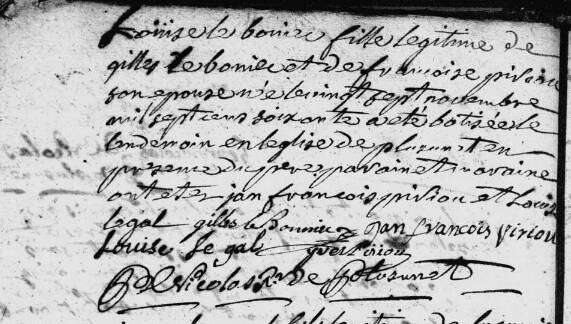 Louise le boniec fille legitime de
gilles le boniec et de francoise piriou
son epouse nee le vingt sept novembre
mil sept cens soixante a eté batisée le
lendemain en leglise de plusunet en
presence du pere parain et maraine
ont eté jan francois piriou et Louise
legal gilles le bonniec jan francois piriou
Louise le gal yves piriou
de Plusunet